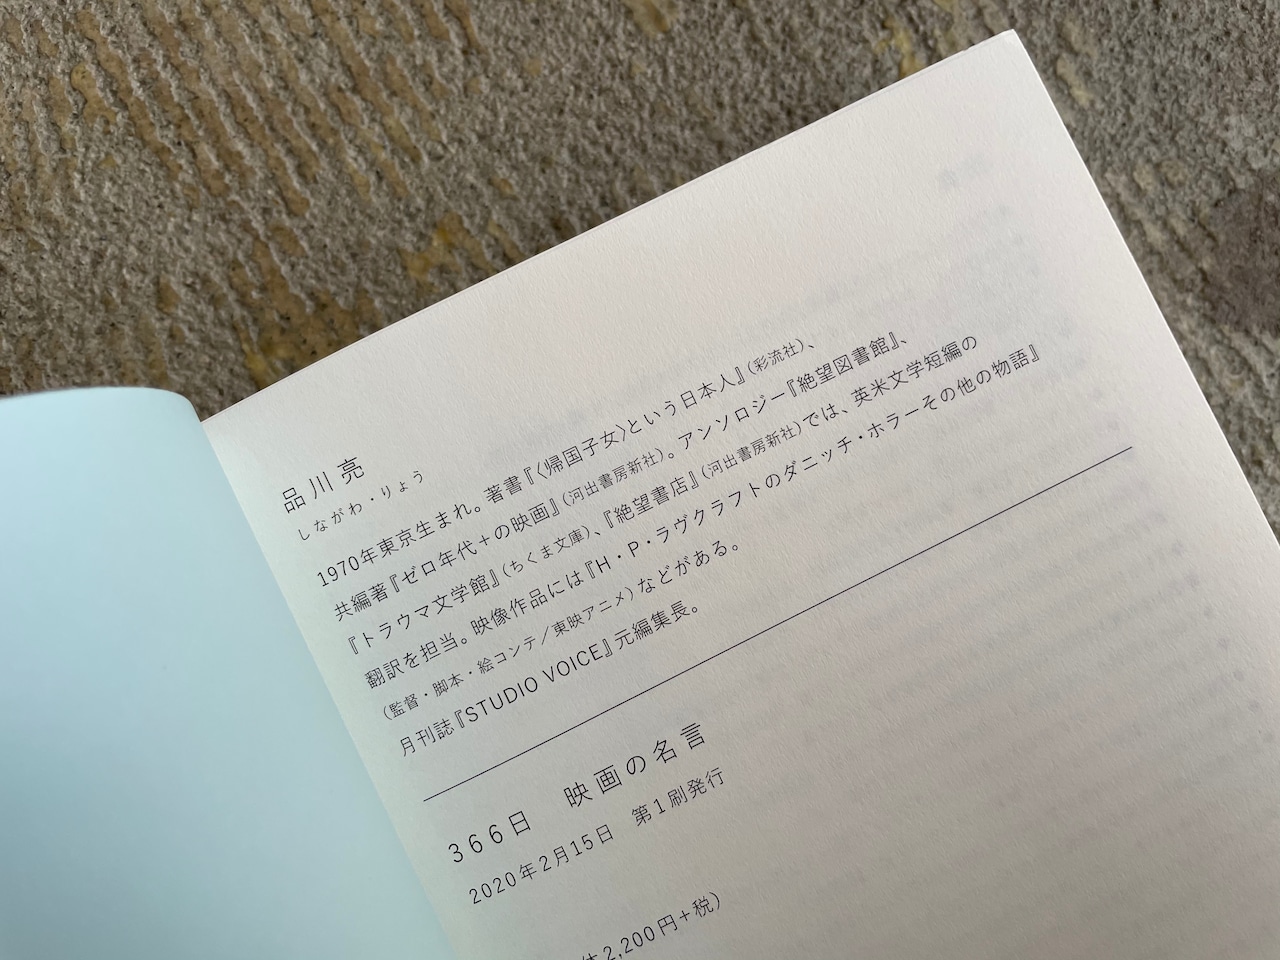 品川亮
しながわ・りょう
1970年東京生まれ。著書『〈帰国子女〉という日本人』(彩流社)、
共編著『ゼロ年代+の映画』(河出書房新社)。アンソロジー『絶望図書館』、
『トラウマ文学館』(ちくま文庫)、『絶望書店』(河出書房新社)では、英米文学短編の
翻訳を担当。映像作品には『H・P・ラヴクラフトのダニッチ・ホラーその他の物語』
(監督・脚本・絵コンテ/東映アニメ)などがある。
月刊誌『STUDIO VOICE』元編集長。
366日 映画の名言
2020年2月15日 第1刷発行
体2,200円+税)